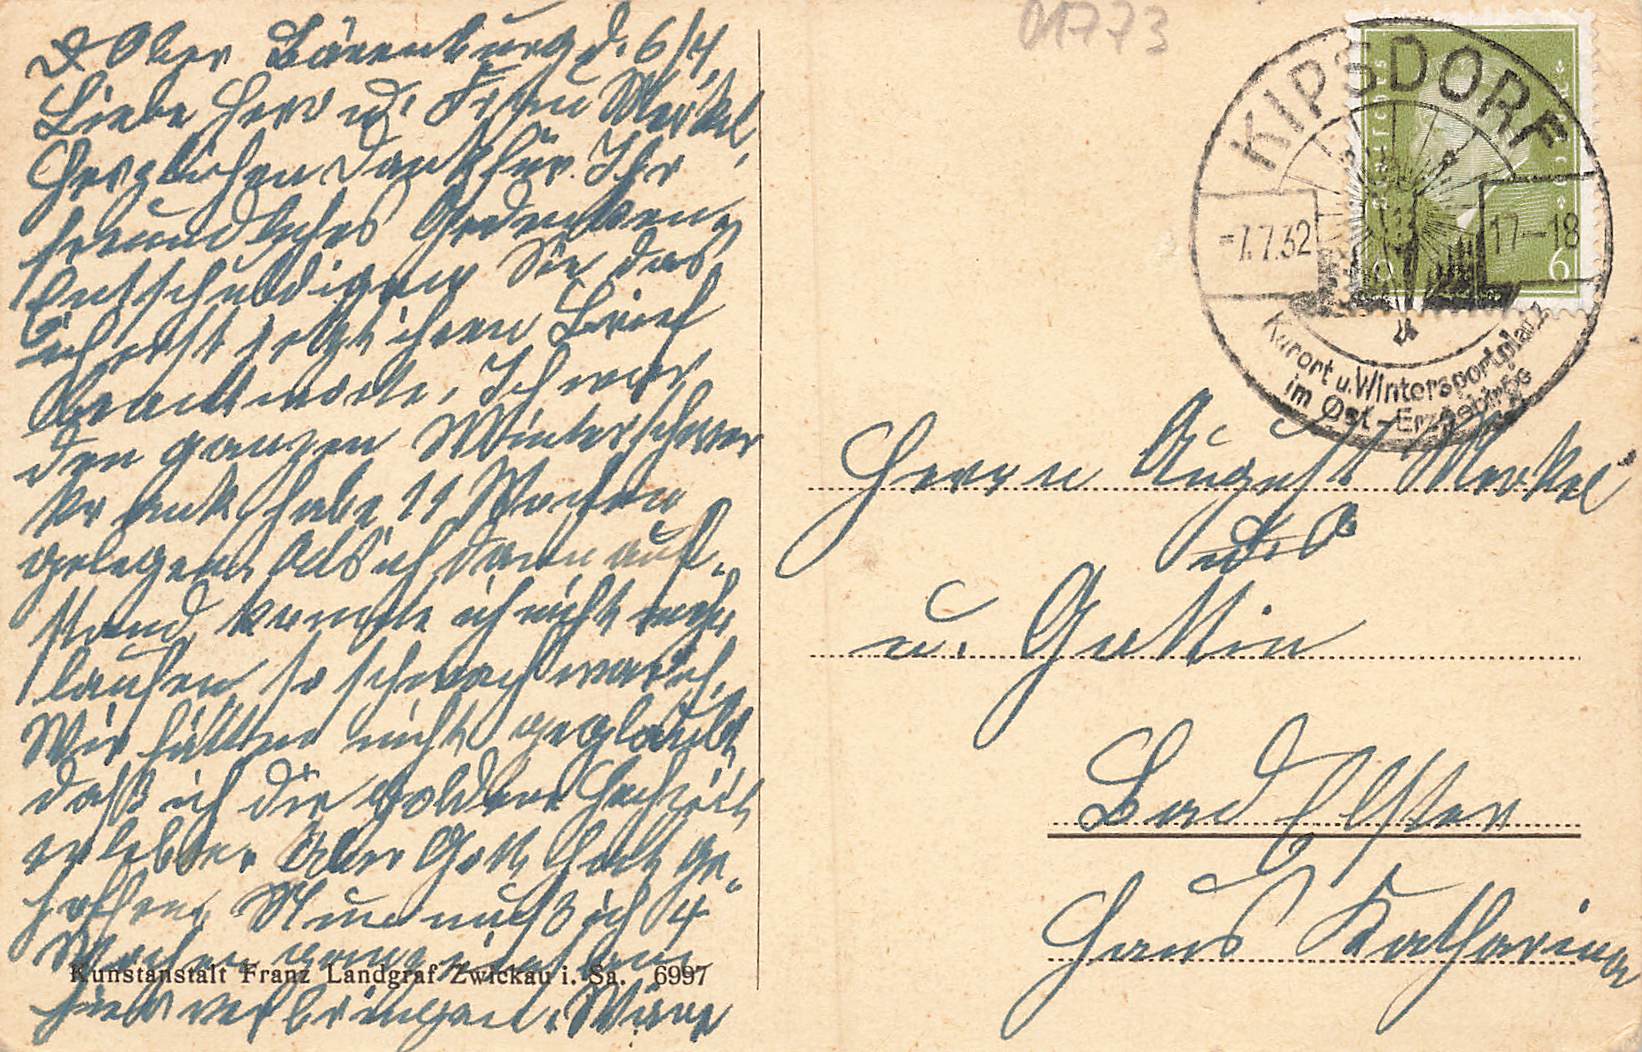 Ober Bärenburg d. 6/7.
Liebe Herr u. Frau Merkel,
Herzlichen Dank für Ihr
freundliches Gedenken
Entschuldigen Sie das
ich erst jetzt ihren Brief
beantworte, Ich war
den ganzen Winter schwer
krank habe 11 Wochen
gelegen. Als ich dann auf-
stand konnte ich nicht mehr
laufen so schwach war ich.
Wir hätten nicht geglaubt
daß ich die goldene Hochzeit
erlebte. Aber Gott hat ge-
holfen. Nun muß ich 4
Wochen
hier verbringen. Wäre
Kunstanstalt Franz Landgraf Zwickau i. Sa. 6997
01773
KIPSDORF
-7.7.32
17-18
Kurort u. Wintersportplatz
im Ost-Erzgebirge
Deutsches Reich
6
Herrn August Merkel
u. Gattin
Bad Elster
Haus Katharina